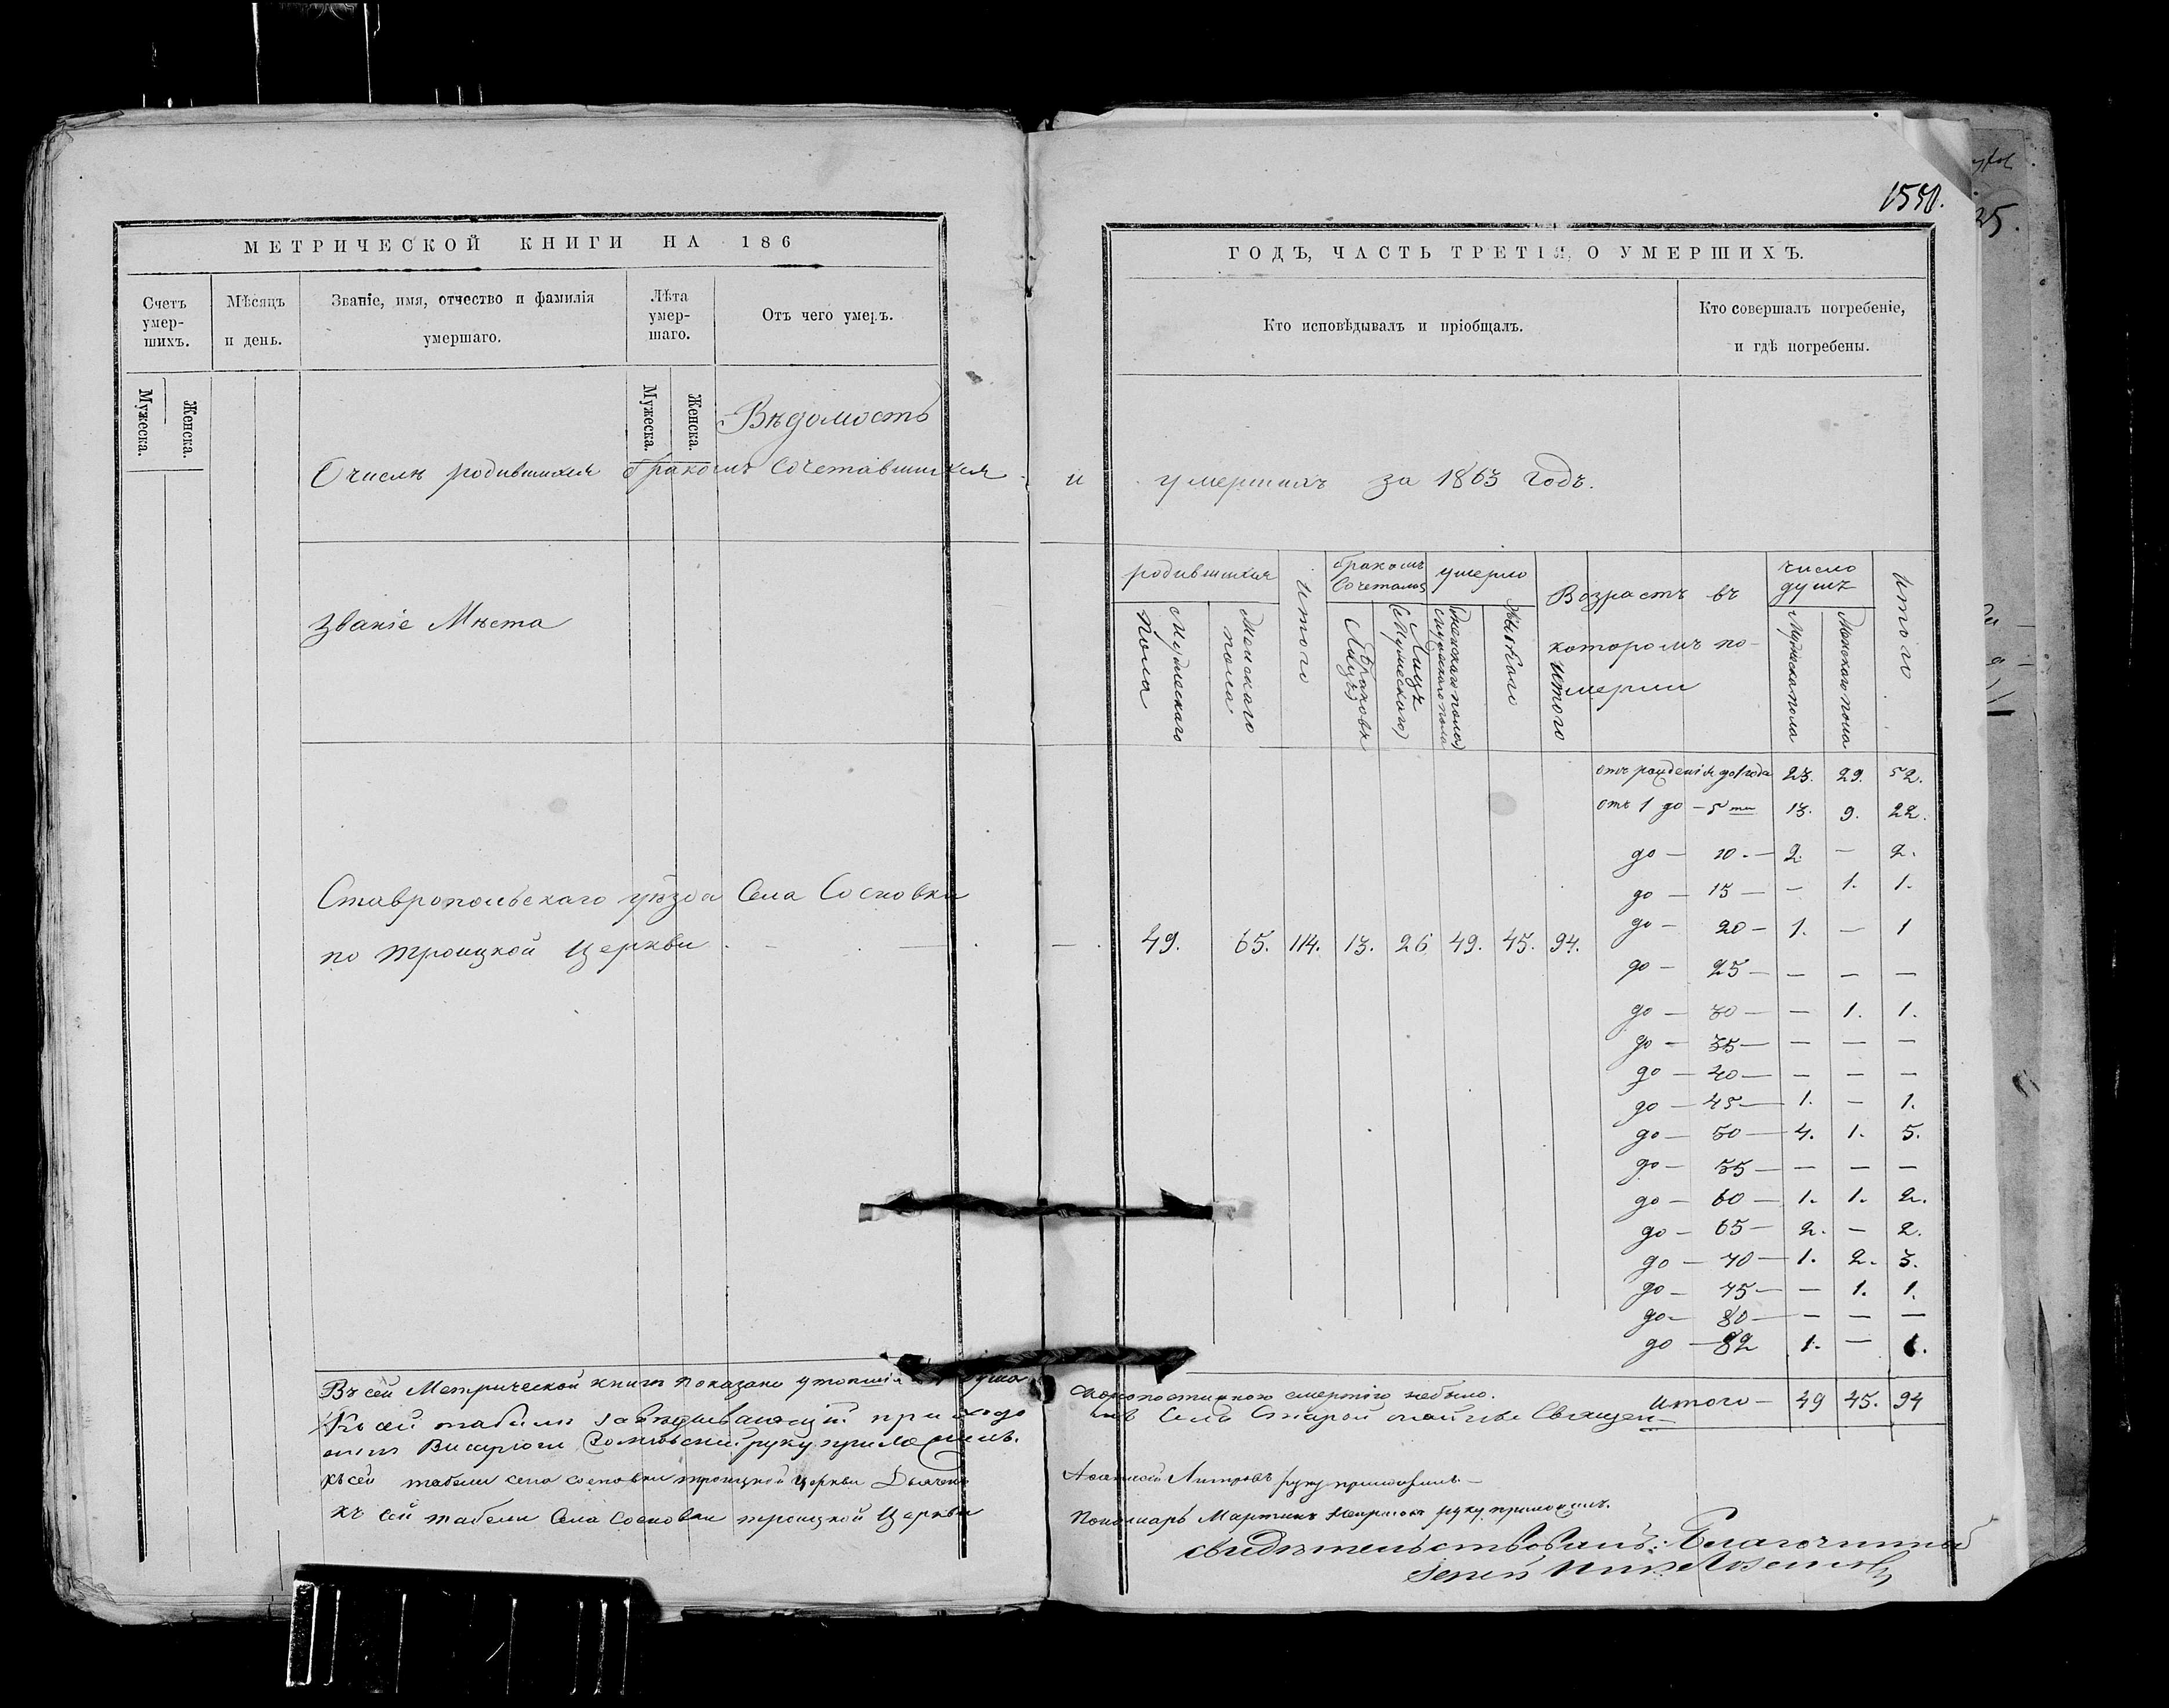 1550.
МЕТРИЧЕСКОЙ КНИГИ НА 186
ГОДЪ, ЧАСТЬ ТРЕТІЯ, О УМЕРШИХЪ.
Счетъ умер-шихъ.
Мужеска.
Женска.
Мѣсяцъ и день.
Званіе, имя, отчество и фамилія умершаго.
Лѣта умер-шаго.
Мужеска.
Женска.
Отъ чего умеръ.
Кто исповѣдывалъ и пріобщалъ.
Кто совершалъ погребеніе, и гдѣ погребены.
Вѣдомость
О числѣ родившихся бракомъ сочетавшихся и умершихъ за 1863 годъ.
Званіе Мѣста
родившихся
Мужескаго пола
Женскаго пола
Итого
бракомъ
Браковъ
Лицъ
умерло
Итого
Возрастъ въ которомъ по-мерли
число душъ
Мужеска пола
Женскаго пола
Итого
Ставропольскаго уѣзда Села Сосновки
по Троицкой Церкви — 49. 65. 114. 13. 26 49. 45. 94.
отъ рожденія до 1 года 23. 29. 52.
отъ 1 до — 5 ти 13. 9. 22.
до — 10. — 2 — 2.
до — 15 — — 1. 1.
до — 20 — 1. — 1
до — 25 — — — —
до — 30 — — 1. 1.
до — 35 — — — —
до — 40 — — — —
до — 45 — 1. — 1.
до — 50 — 4. 1. 5.
до — 55 — — — —
до — 60 — 1. 1. 2.
до — 65 — 2. — 2.
до — 70 — 1. 2. 3.
до — 75 — — 1. 1.
до — 80 — — — —
до — 82 1. — 1.
Итого — 49 45. 94
Въ сей Метрической книги показано скоропостижною смертію небыло.
Къ сей табели приходо Села Старой Священ-
руку приложилъ.
Къ сей табели села Сосновки Троицкой Церкви Дьячекъ руку приложилъ —
Къ сей табели Села Сосновки Троицкой Церкви Пономарь Мартинъ руку приложилъ.
Свидѣтельствовалъ: Благочинный